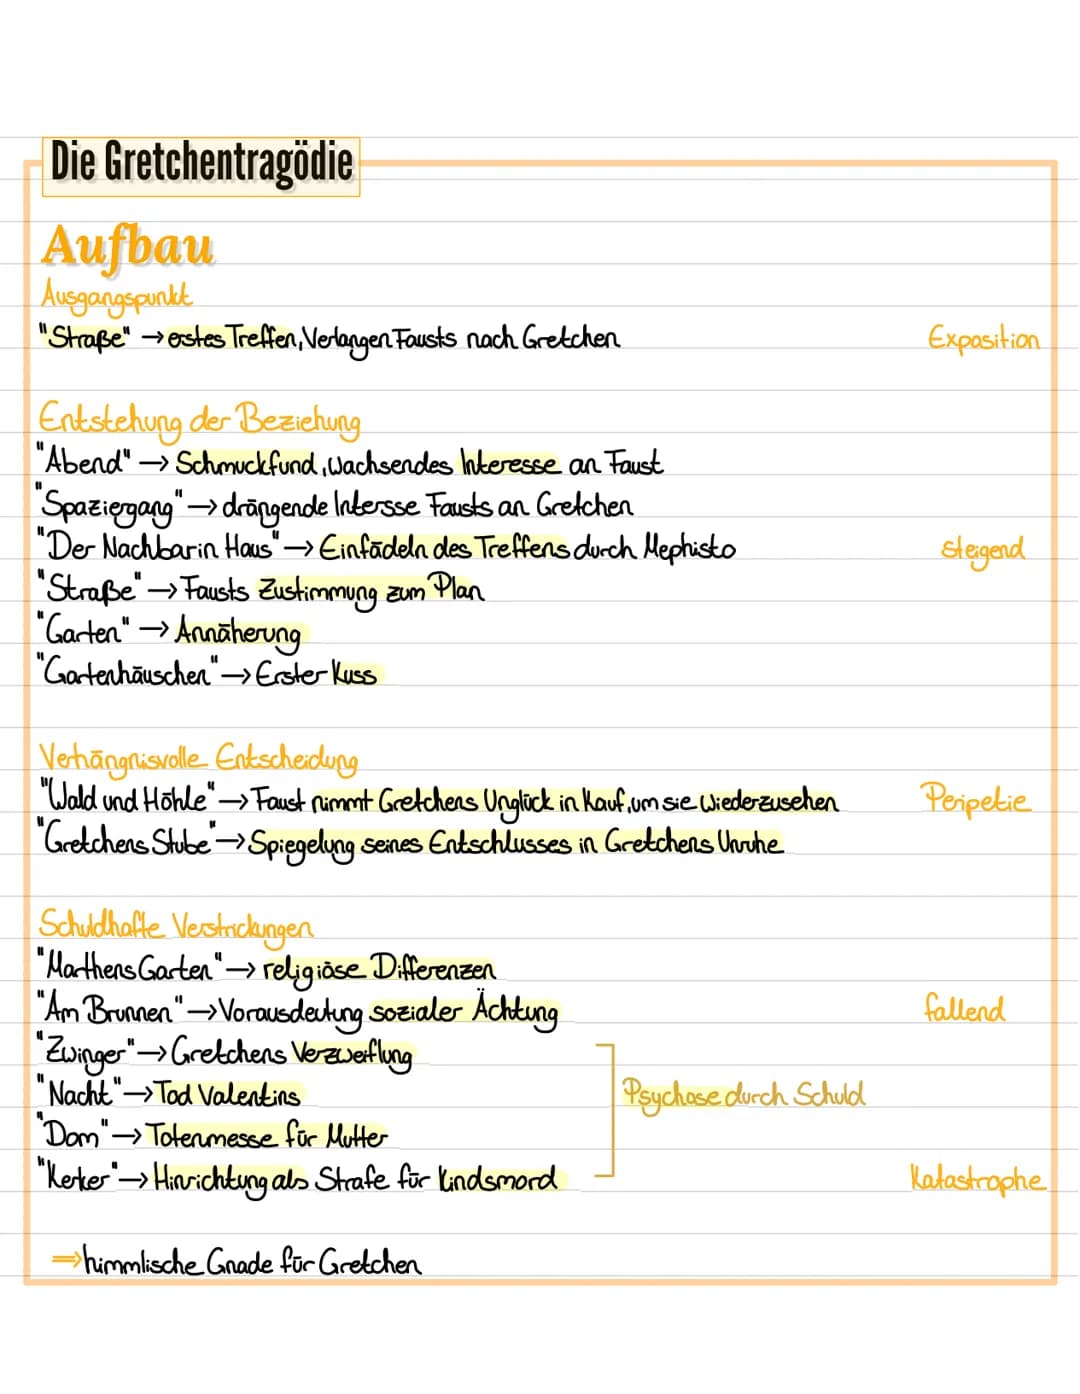 Die Gretchentragödie
Aufbau
Ausgangspunkt
"Straße" → erstes Treffen, Verlangen Fausts nach Gretchen Exposition
Entstehung der Beziehung
"Abend" → Schmuckfund, wachsendes Interesse an Faust
"Spaziergang" → drängende Intersse Fausts an Gretchen
"Der Nachbarin Haus" → Einfädeln des Treffens durch Mephisto steigend
"Straße" → Fausts Zustimmung zum Plan
"Garten" → Annäherung
"Gartenhäuschen" → Erster Kuss
Verhängnisvolle Entscheidung
"Wald und Höhle" → Faust nimmt Gretchens Unglück in Kauf, um sie wiederzusehen Peripetie
"Gretchens Stube" → Spiegelung seines Entschlusses in Gretchens Unruhe
Schuldhafte Verstrickungen
"Marthens Garten" → religiöse Differenzen
"Am Brunnen" → Vorausdeutung sozialer Ächtung fallend
"Zwinger" → Gretchens Verzweiflung
"Nacht" → Tod Valentins Psychose durch Schuld
"Dom" → Totenmesse für Mutter
"Kerker" → Hinrichtung als Strafe für Kindsmord Katastrophe
⇒ himmlische Gnade für Gretchen